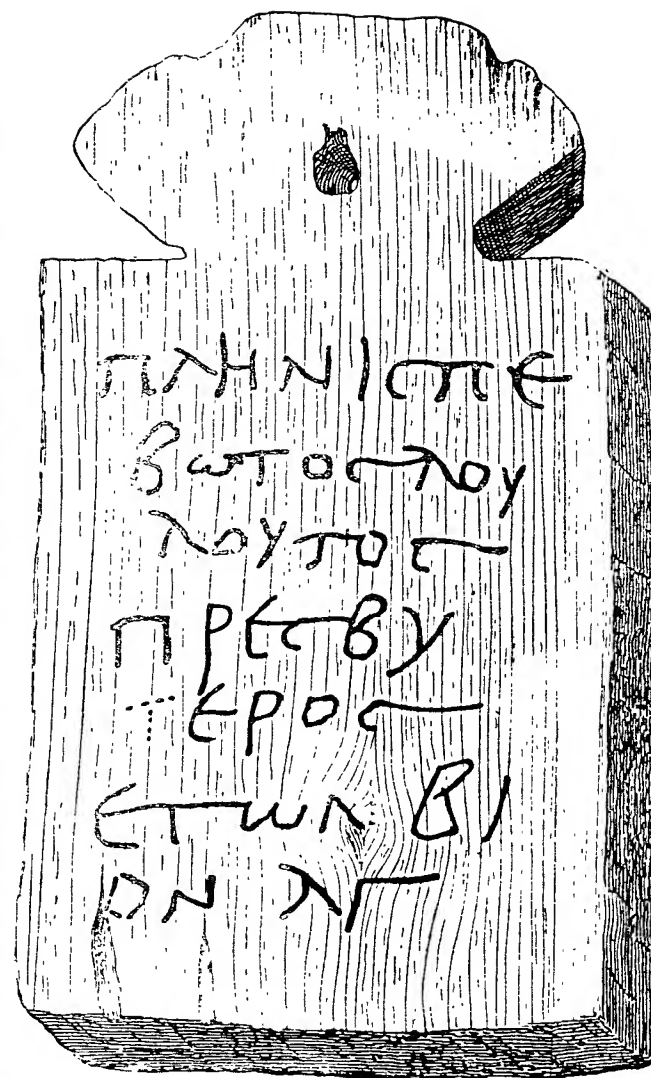 ΠΛΗΝΙϹ ΠΕ
ΒΩΤΟϹ ΛΟΥ
ΛΟΥΤΟϹ
ΠΡΕϹΒΥ
ΤΕΡΟϹ
ΕΤΩΝ ΒΙ
ΟΝ ΛΓ